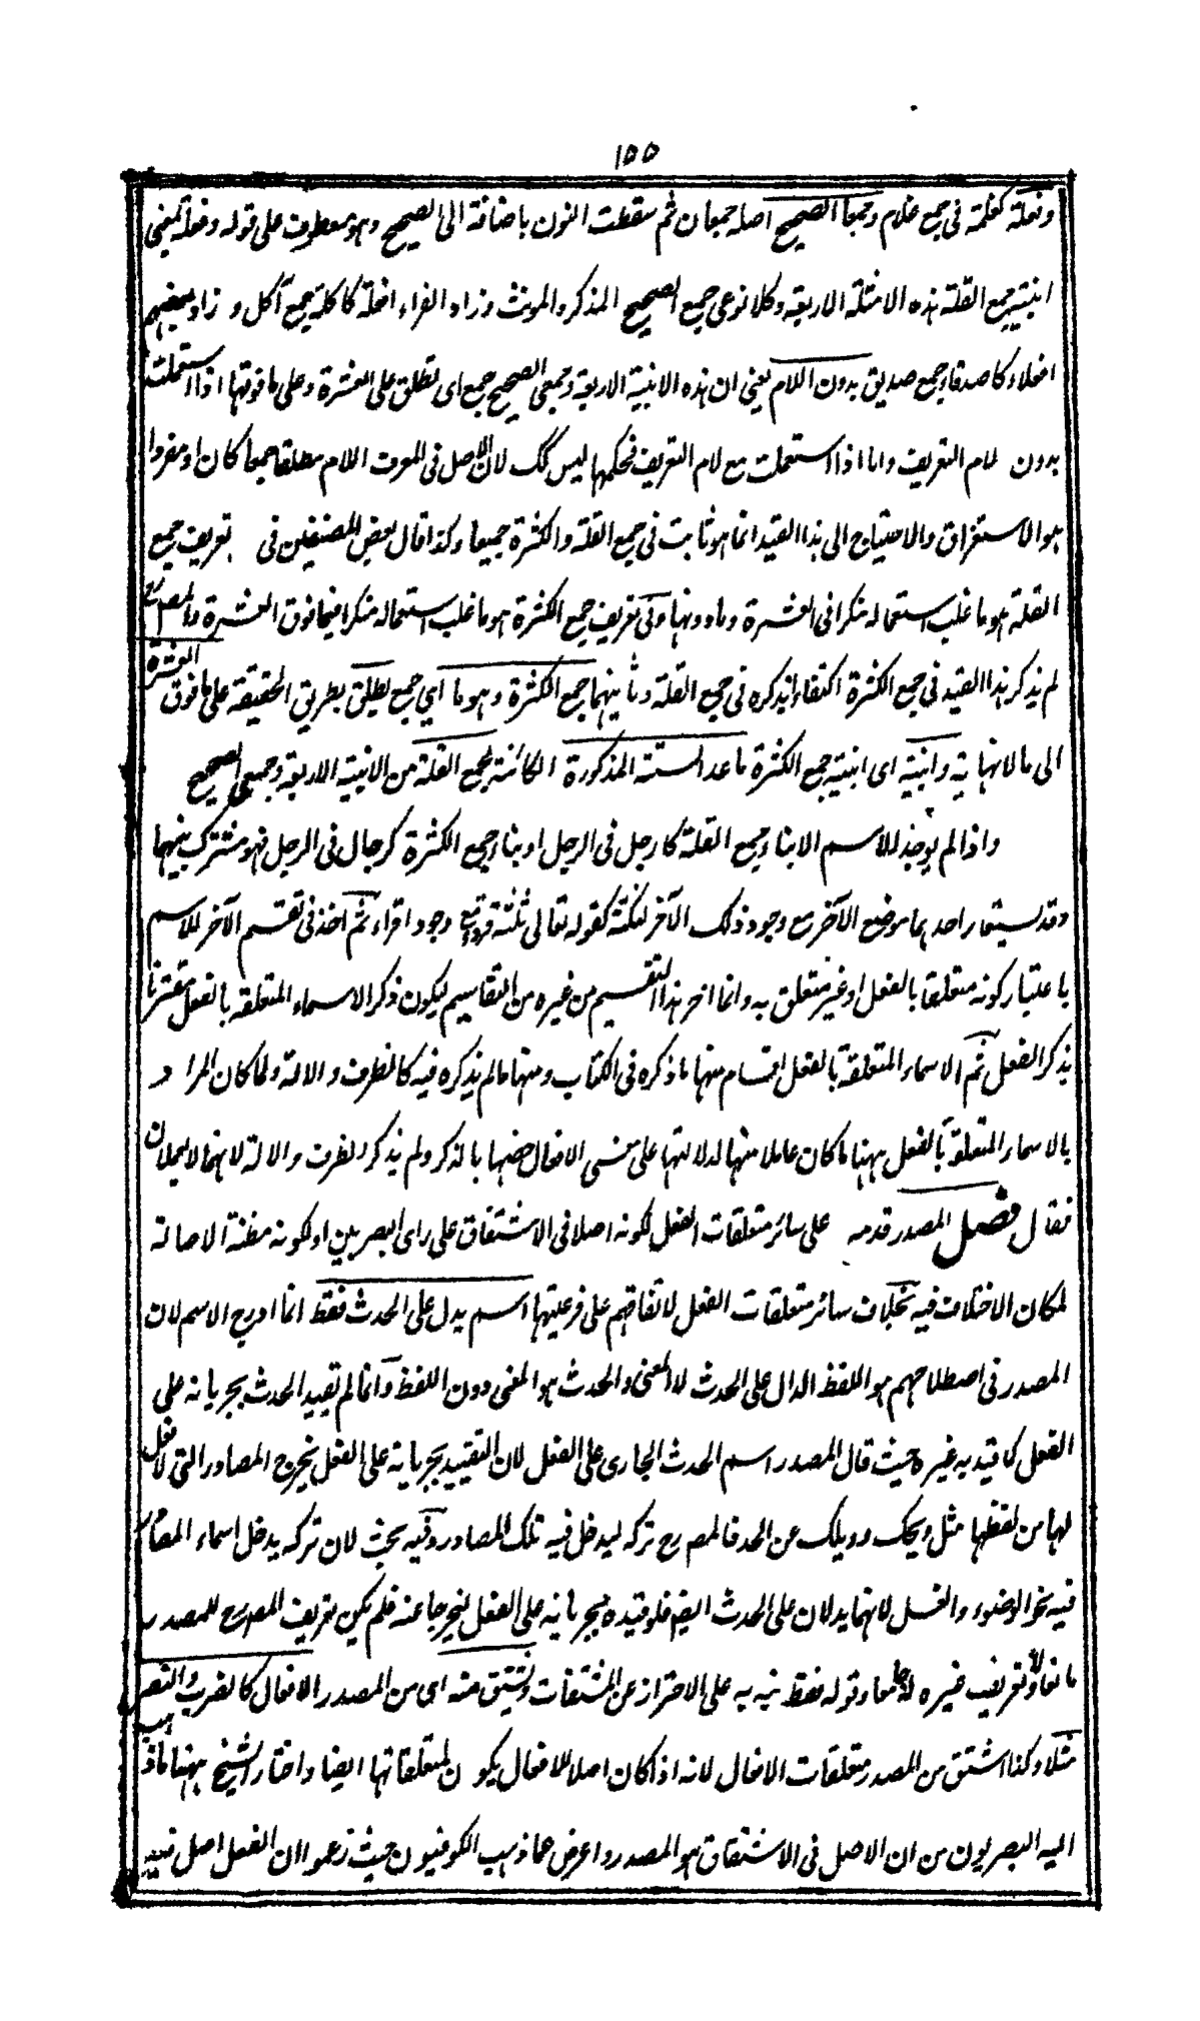 ١٥٥
وفعلة كغلمة فى جمع غلام وجمعا الصحيح اصله جمعان ثم سقطت النون باضافة الى الصحيح وهو معطوف على قوله وفعلة يعنى
ابنية جمع القلة هذه الامثلة الاربعة وكلا نوعى جمع الصحيح المذكر والمونث وزاد الفراء افعلة كاكلة جمع آكل و زاد بعضهم
افعلاء كاصدقاء جمع صديق بدون اللام يعنى ان هذه الابنية الاربعة وجمعى الصحيح جمع اى تطلق على العشرة وعلى ما فوقها اذا استعملت
بدون لام التعريف واما اذا استعملت مع لام التعريف فحكمها ليس كك لان الاصل فى المعرف اللام مطلقا جمعا كان او مفردا
هو الاستغراق والاحتياج الى هذا القيد انما هو ثابت فى جمع القلة والكثرة جميعا وكذا قال بعض المصنفين فى تعريف جمع
القلة هو ما غلب استعماله منكرا فى العشرة وما دونها وفى تعريف جمع الكثرة هو ما غلب استعماله منكرا فيما فوق العشرة والمصرح
لم يذكر هذا القيد فى جمع الكثرة اكتفاء بذكره فى جمع القلة وثانيهما جمع الكثرة وهو ما اي جمع يطلق بطريق الحقيقة على ما فوق العشرة
الى ما لا نهاية وابنية اى ابنية جمع الكثرة ما عدا الستة المذكورة الكائنة لجمع القلة من الابنية الاربعة وجمعى الصحيح
واذا لم يوجد للاسم الا بناء جمع القلة كارجل فى الرجل او بناء جمع الكثرة كرجال فى الرجل فهو مشترك بينهما
وقد يستعار احدهما موضع الآخر مع وجود ذلك الآخر لنكتة كقوله تعالى ثلثة قروء مع وجود اقراء ثم اخذ فى تقسم الآخر للاسم
باعتبار كونه متعلقا بالفعل او غير متعلق به وانما اخر هذا التقسيم من غيره من التقاسيم ليكون ذكر الاسماء المتعلقة بالفعل مقترنا
بذكر الفعل ثم الاسماء المتعلقة بالفعل اقسام منها ما ذكره فى الكتاب ومنها ما لم يذكره فيه كالظرف و الالة ولما كان المراد
بالاسماء المتعلقة بالفعل ههنا ما كان عاملا منها لدلالتها على معنى الافعال خصها بالذكر ولم يذكر الظرف والالة لانهما لا يعملان
فقال فصل المصدر قدمه على سائر متعلقات الفعل لكونه اصلا فى الاشتقاق على راى البصريين او لكونه مظنة الاصالة
لمكان الاختلاف فيه بخلاف سائر متعلقات الفعل لاتفاقهم على فرعيتها اسم يدل على الحدث فقط انما ادرج الاسم لان
المصدر فى اصطلاحهم هو اللفظ الدال على الحدث لا المعنى والحدث هو المعنى دون اللفظ وانما لم تقييد الحدث بجريانه على
الفعل كما قيد به غيره حيث قال المصدر اسم الحدث الجارى على الفعل لان التقييد بجريانه على الفعل يخرج المصادر التى لا فعل
لها من لفظها مثل ويحك وويلك عن الحد فالمصرح تركه ليدخل فيه تلك المصادر وفيه بحث لان تركه يدخل اسماء المصادر
فيه نحو الوضوء والغسل لانهما يدلان على الحدث ايضا فلو قيده بجريانه على الفعل ليخرجا عنه فلم يكن تعريف المصرح للمصدر
مانعا وتعريف غيره له جامعا وقوله فقط ينبه به على الاحتراز عن المشتقات ويشتق منه اى من المصدر الافعال كالضرب والنصر
مثلا وكذا اشتق من المصدر متعلقات الافعال لانه اذا كان اصلا للافعال يكون لمتعلقاتها ايضا واختار الشيخ ههنا ما ذهب
اليه البصريون من ان الاصل فى الاشتقاق هو المصدر واعرض عما ذهب الكوفيون حيث زعموا ان الفعل اصل فيه